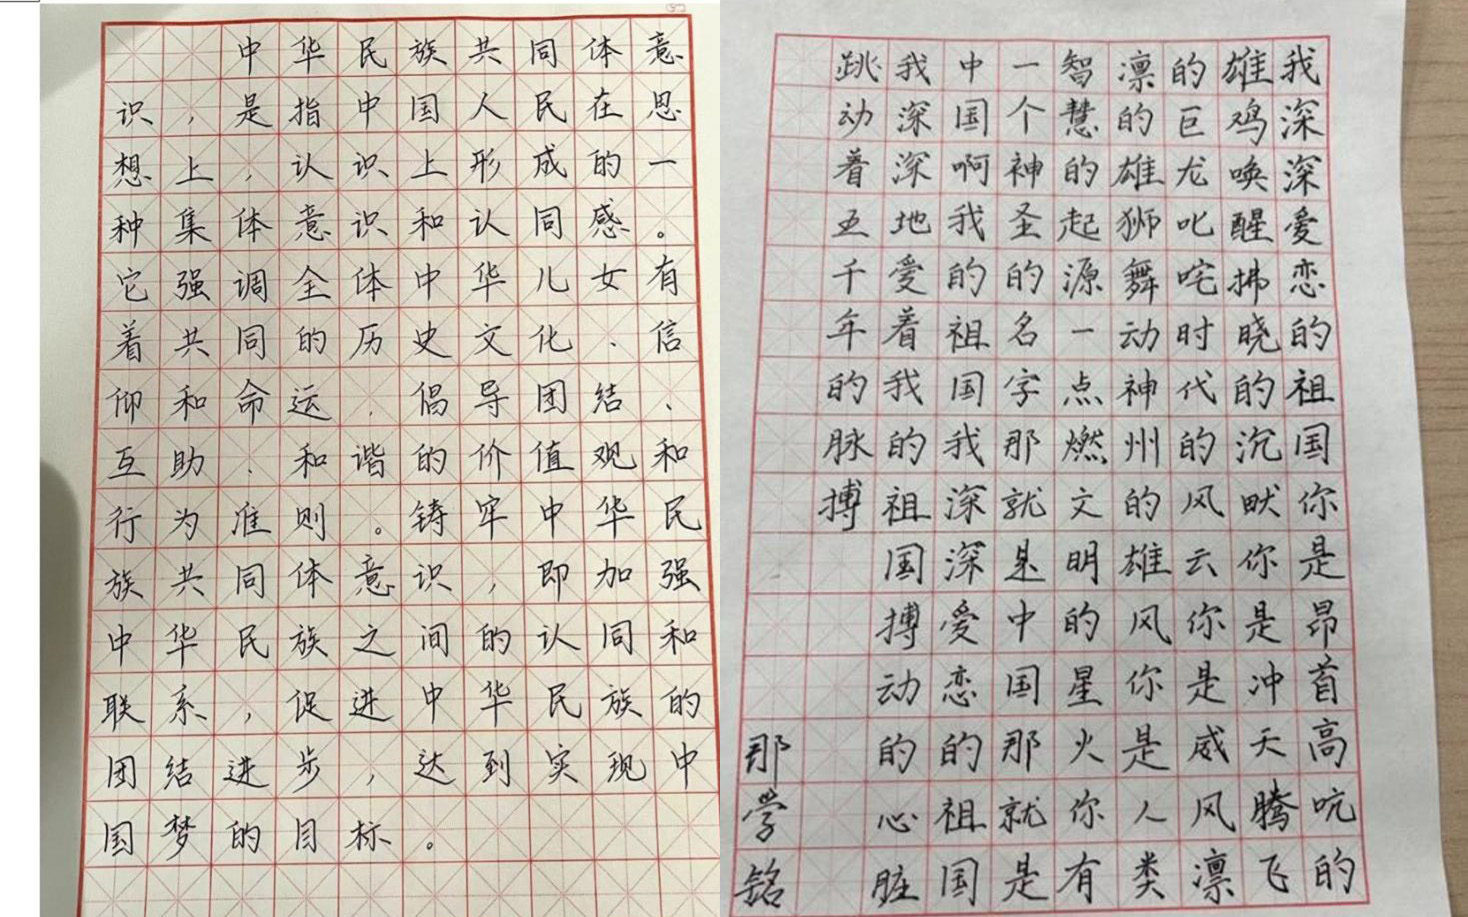 中华民族共同体意
识，是指中国人民在思
想上，认识上形成的一
种集体意识和认同感。
它强调全体中华儿女有
着共同的历史文化、信
仰和命运，倡导团结、
互助、和谐的价值观和
行为准则。铸牢中华民
族共同体意识，即加强
中华民族之间的认同和
联系，促进中华民族的
团结进步，达到实现中
国梦的目标。
我深深爱恋的祖国你是昂首高吭的
雄鸡唤醒拂晓的沉默你是冲天腾飞
的巨龙叱咤时代的风云你是威风凛
凛的雄狮舞动神州的雄风你是人类
智慧的起源一点燃文明的星火你有
一个神圣的名字那就是中国那就是
中国啊我的祖国我深深爱恋的祖国
我深深地爱着我的祖国搏动的心脏
跳动着五千年的脉搏
那学铭